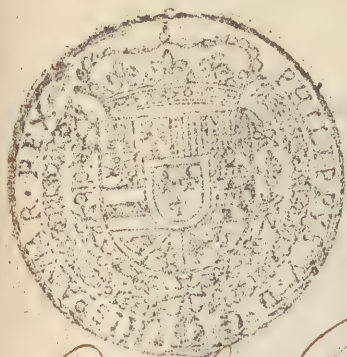 PHILIPPVS D G HISPANIAR·REX